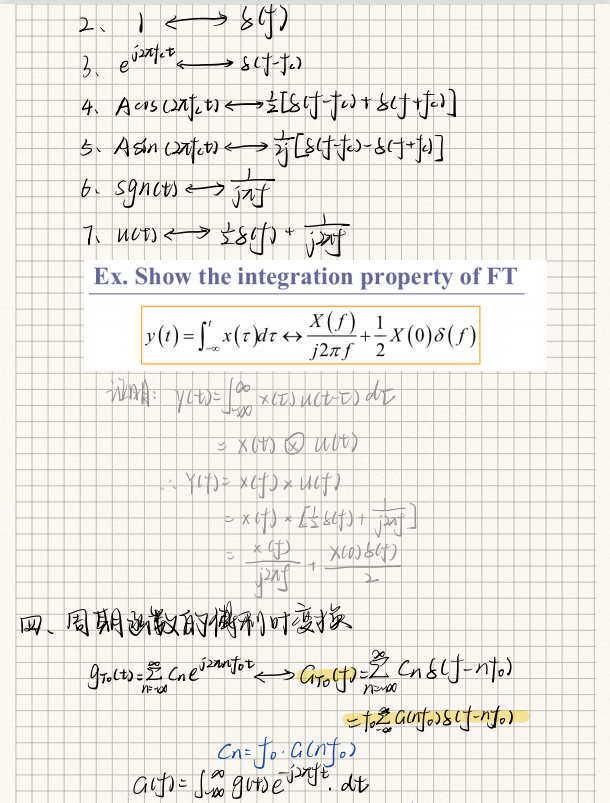 2、 1 ⟷ δ(f)
3、 e^{j2πf_ct} ⟷ δ(f-f_c)
4、 Acos(2πf_ct) ⟷ 1/2[δ(f-f_c)+δ(f+f_c)]
5、 Asin(2πf_ct) ⟷ 1/2j[δ(f-f_c)-δ(f+f_c)]
6、 sgn(t) ⟷ 1/jπf
7、 u(t) ⟷ 1/2 δ(f) + 1/j2πf
Ex. Show the integration property of FT
y(t) = ∫_{-∞}^{t} x(τ)dτ ↔ X(f)/j2πf + 1/2 X(0)δ(f)
证明: y(t)=∫_{-∞}^{∞} x(τ)u(t-τ) dτ
= x(t) ⊗ u(t)
∴ Y(f)= x(f) × u(f)
= x(f) × [1/2 δ(f) + 1/j2πf]
= x(f)/j2πf + x(0)δ(f)/2
四、周期函数的傅利叶变换
g_{T_0}(t)=∑_{n=-∞}^{∞} C_n e^{j2πnf_0t} ⟷ G_{T_0}(f)=∑_{n=-∞}^{∞} C_n δ(f-nf_0)
=f_0 ∑_{-∞}^{∞} G(nf_0)δ(f-nf_0)
C_n=f_0·G(nf_0)
G(f)=∫_{-∞}^{∞} g(t)e^{-j2πft}·dt